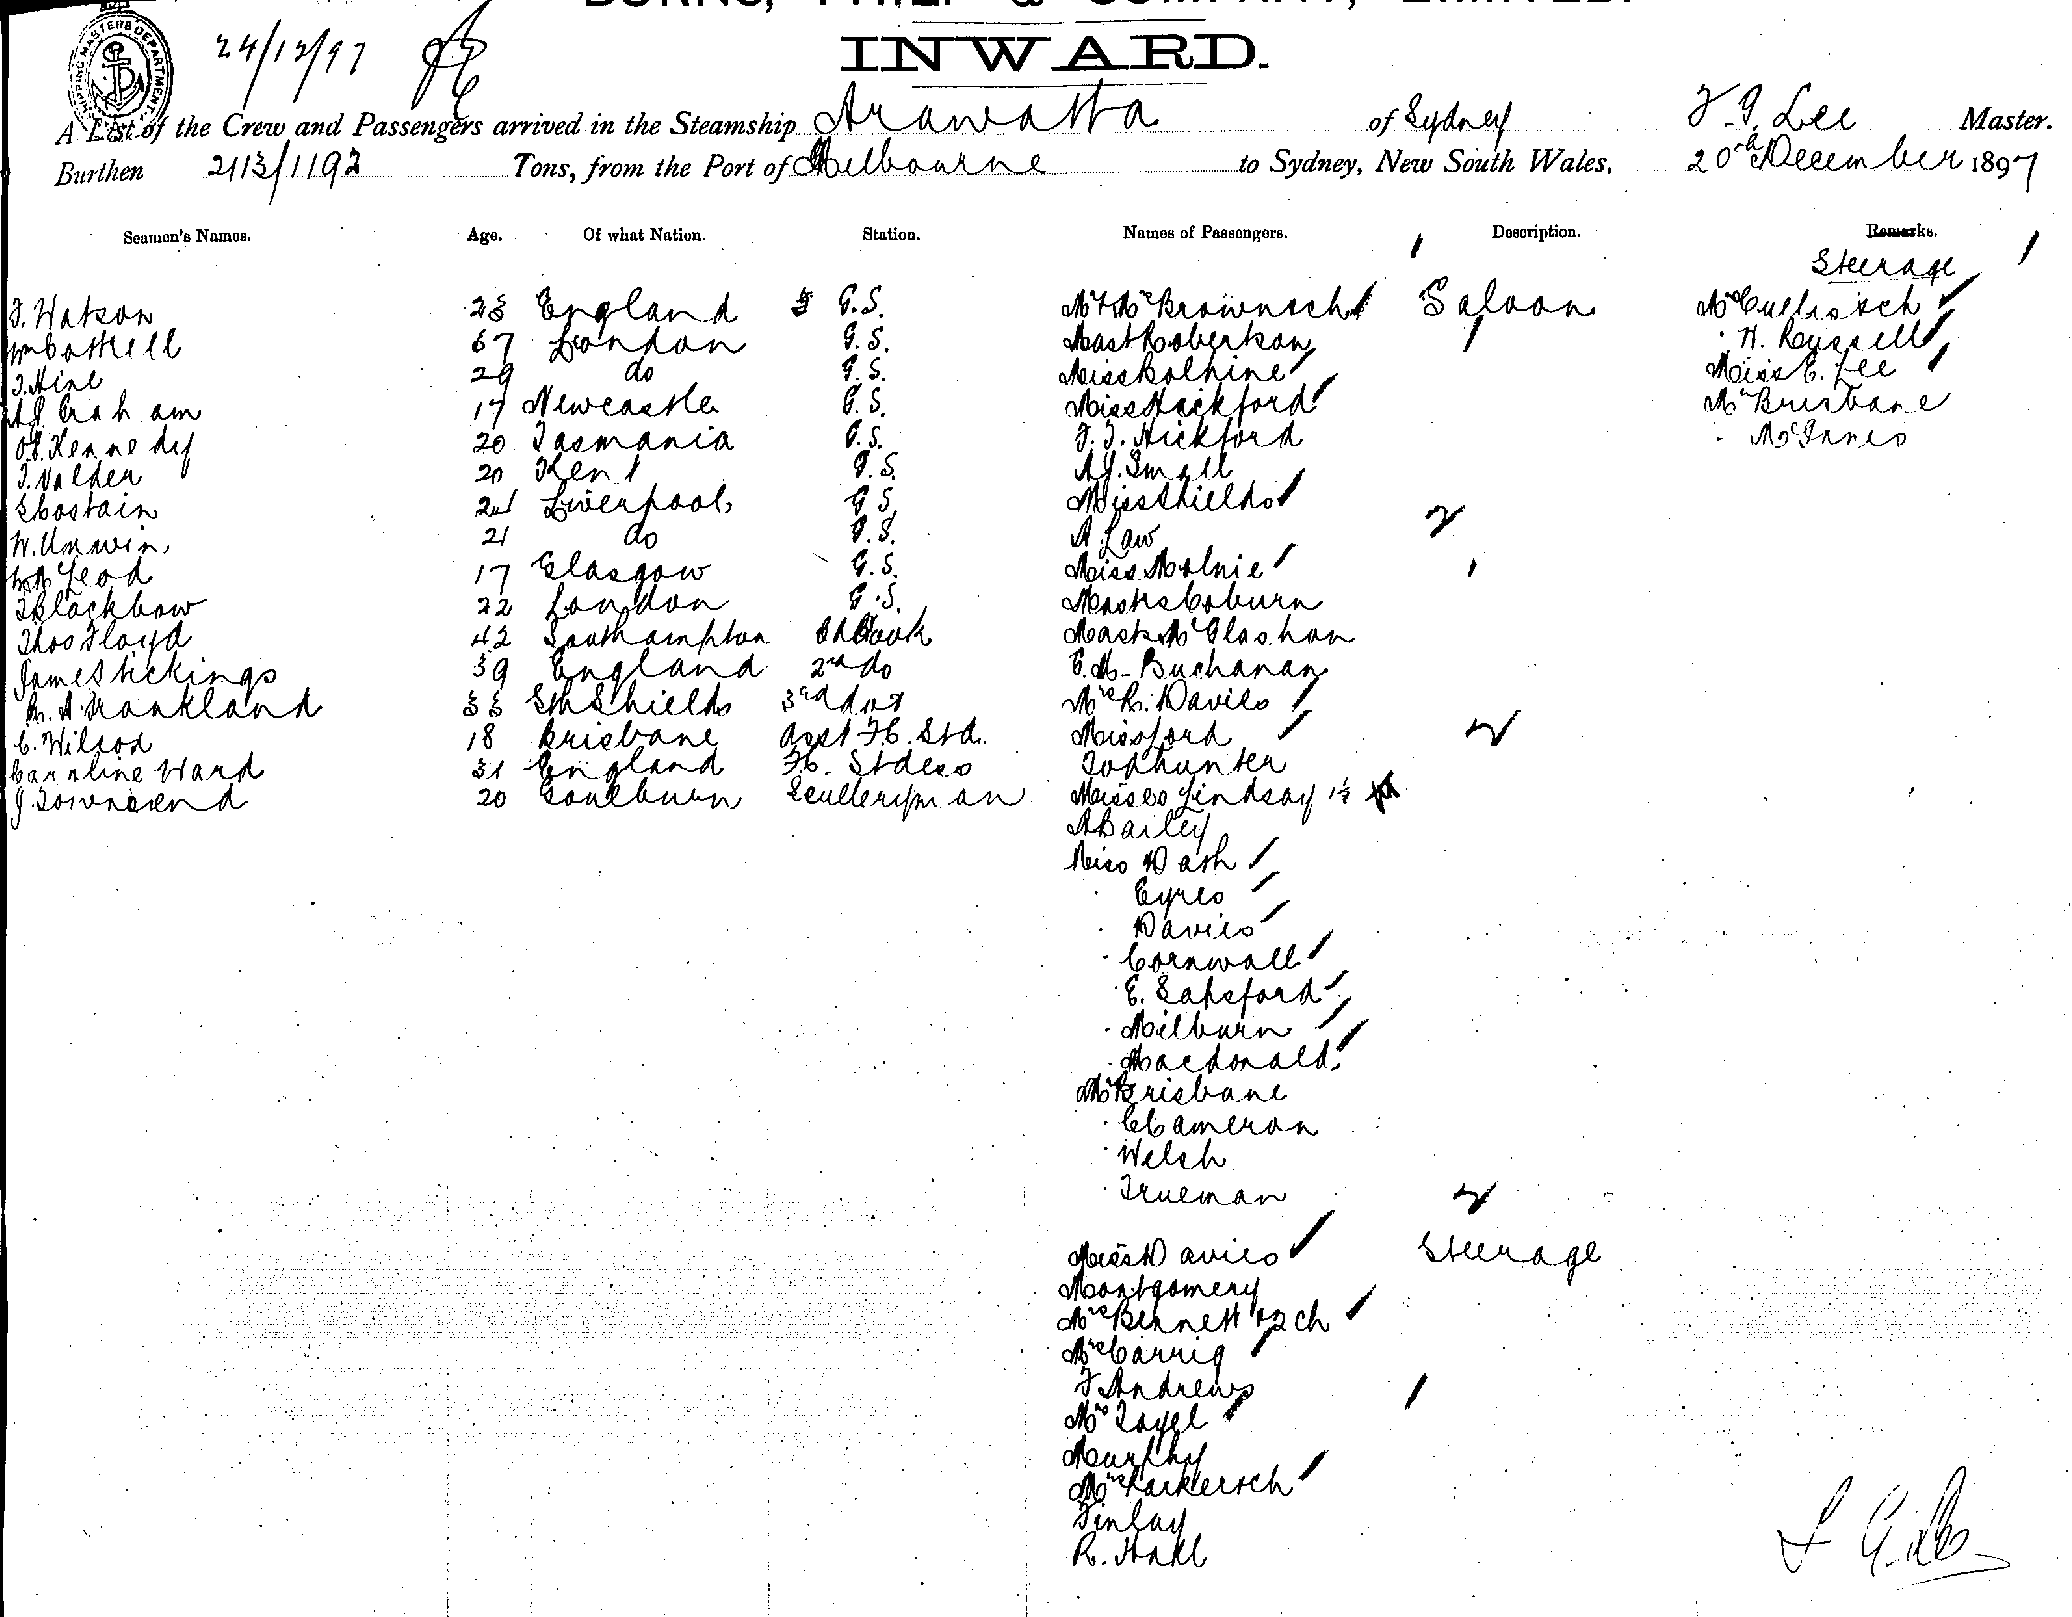 BURNS, PHILP & COMPANY, LIMITED.
INWARD.
SHIPPING MASTERS DEPARTMENT
24/12/97
A List of the Crew and Passengers arrived in the Steamship Arawatta of Sydney Lee Master.
Burthen 2113/1192 Tons, from the Port of Melbourne to Sydney, New South Wales, 20th December 1897
Seamen's Names. Age. Of what Nation. Station. Names of Passengers. Description. Remarks.
Steerage
Watson 23 England G.S. Saloon
67 London G.S. Mast Robertson H. Russell
29 do G.S. Miss Miss E. Lee
Graham 17 Newcastle G.S. Miss Hickford Mr Brisbane
Kennedy 20 Tasmania G.S. Hickford McInnes
20 Kent G.S. Small
Costain 21 Liverpool G.S. Miss Shields
W. Unwin 21 do G.S. A. Law
McLeod 17 Glasgow G.S. Miss
Blackbow 22 London G.S. Coburn
Thos Floyd 42 Southampton Ch Cook McGlashan
James Hickings 39 England 2nd do Buchanan
Frankland 33 Sth Shields 3rd do Mrs R. Davies
C. Wilson 18 Brisbane Asst F.C. Std. Miss Ford
Caroline Ward 31 England F.C. Stdess Todhunter
J. Townsend 20 Goulburn Sculleryman Misses Lindsay
A Bailey
Miss Dash
Eyres
Davies
Cornwall
E. Sapsford
Milburn
Macdonald
Mr Brisbane
C Cameron
Welsh
Trueman
Miss Davies Steerage
Montgomery
Mrs Bennett & 2 ch
Mrs Carrig
Andrews
Murphy
Mrs Parker & ch
Finlay
R. Hall